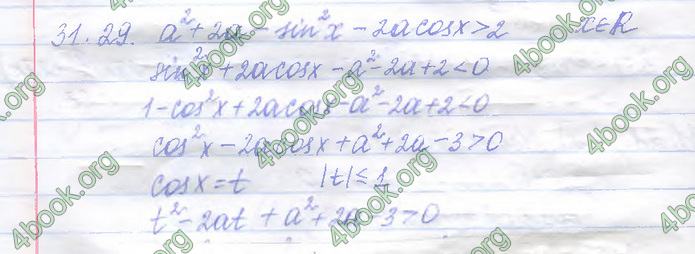 31.29. a²+2a-sin²x-2acosx>2 x∈R
sin²x+2acosx-a²-2a+2<0
1-cos²x+2acosx-a²-2a+2<0
cos²x-2acosx+a²+2a-3>0
cosx=t |t|≤1
t²-2at+a²+2a-3>0
4book.org
4book.org
4book.org
4book.org
4book.org
4book.org